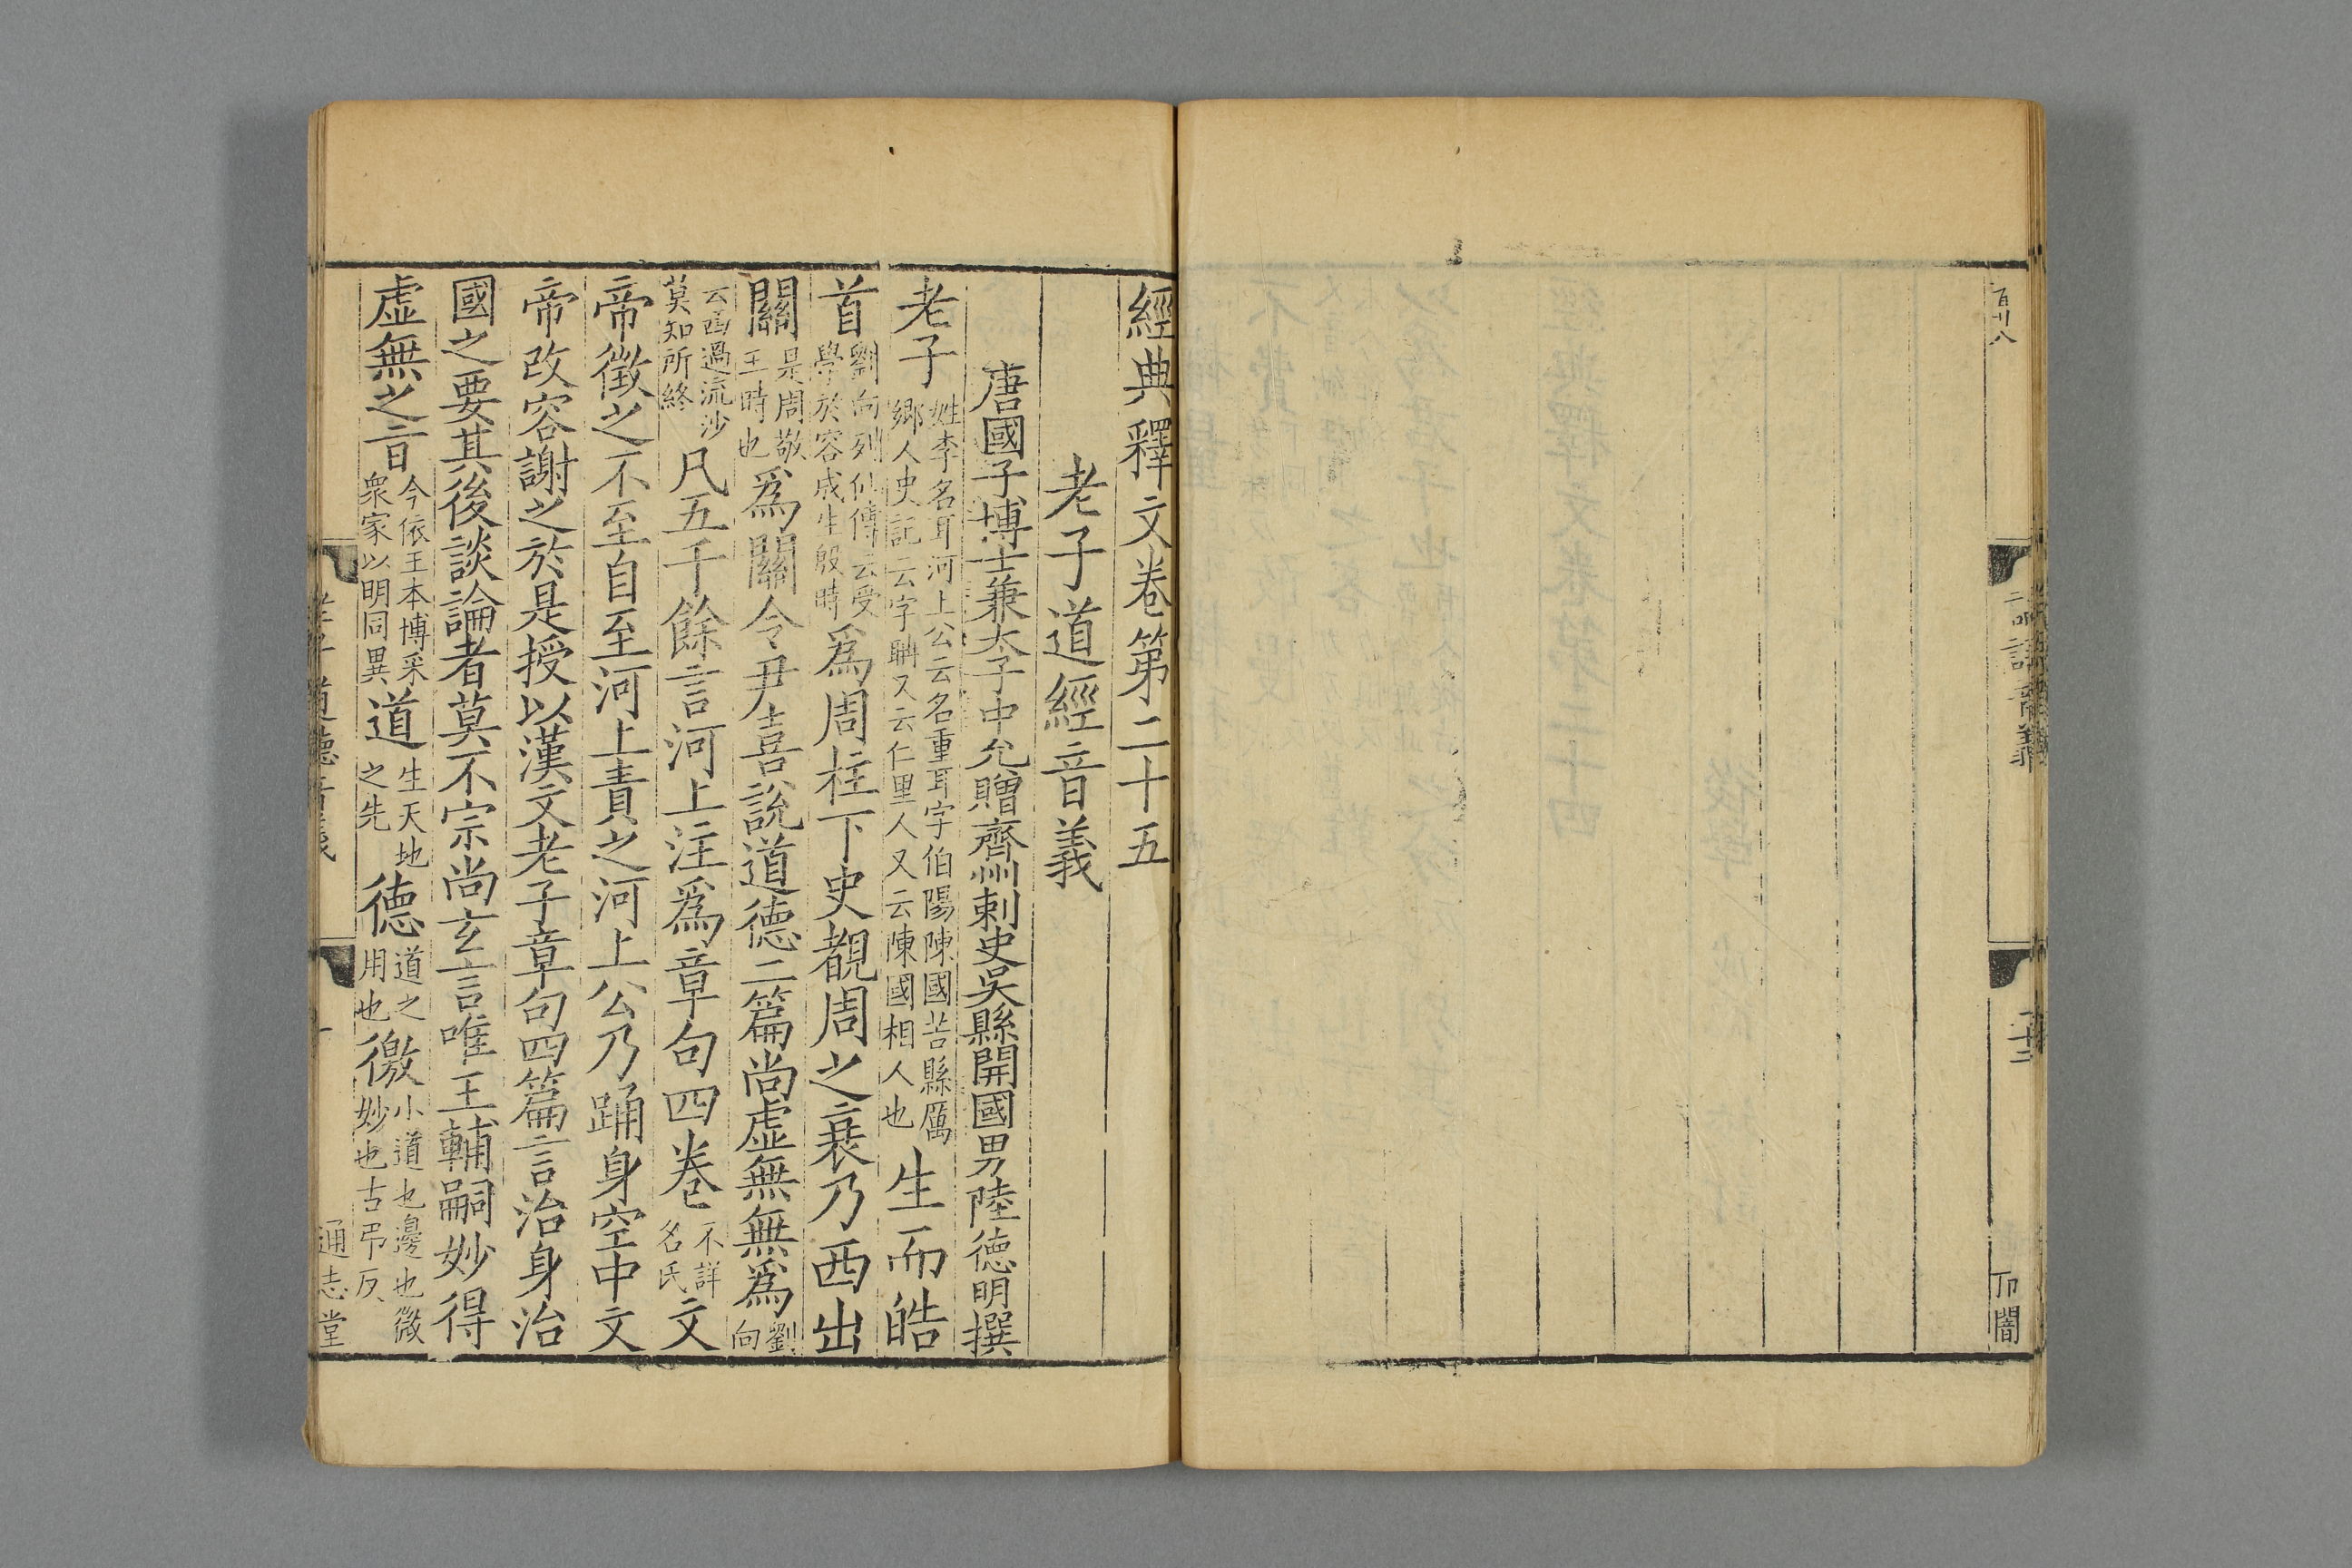 百卅八
論語音義
二十三
卬闇
經典釋文卷第二十五
老子道經音義
唐國子博士兼太子中允贈齊州刺史吳縣開國男陸德明撰
老子姓李名耳河上公云名重耳字伯陽陳國苦縣厲鄉人史記云字聃又云仁里人又云陳國相人也生而皓
首劉向列仙傳云受學於容成生殷時爲周柱下史覩周之衰乃西出
關是周敬王時也爲關令尹喜說道德二篇尚虛無無爲劉向
云西過流沙莫知所終凡五千餘言河上注爲章句四卷不詳名氏文
帝徵之不至自至河上責之河上公乃踊身空中文
帝改容謝之於是授以漢文老子章句四篇言治身治
國之要其後談論者莫不宗尚玄言唯王輔嗣妙得
虛無之旨今依王本博采衆家以明同異道生天地之先德道之用也徼小道也邊也微妙也古弔反
老子道德音義
一
通志堂